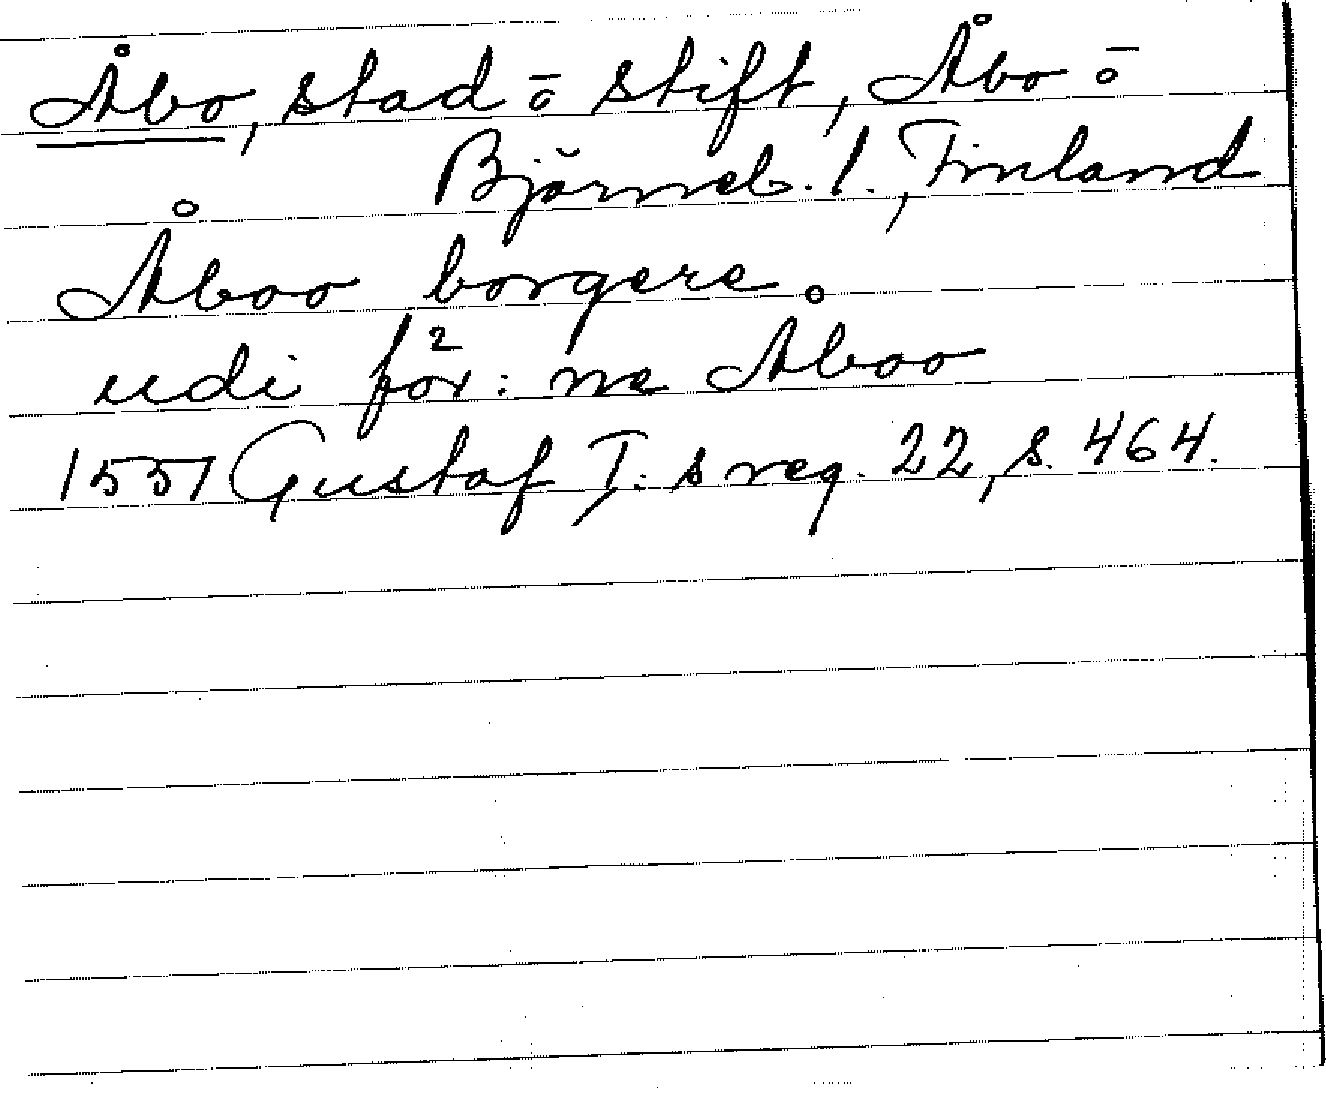 Åbo, stad ō stift, Åbo ō
Björneb. l., Finland
Åboo borgere.
udi för: ne Åboo
1557 Gustaf I:s reg. 22, s. 464.